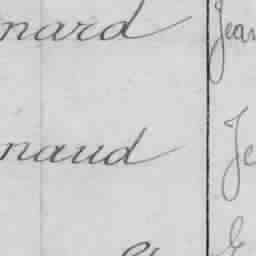 nard Jean
naud Je